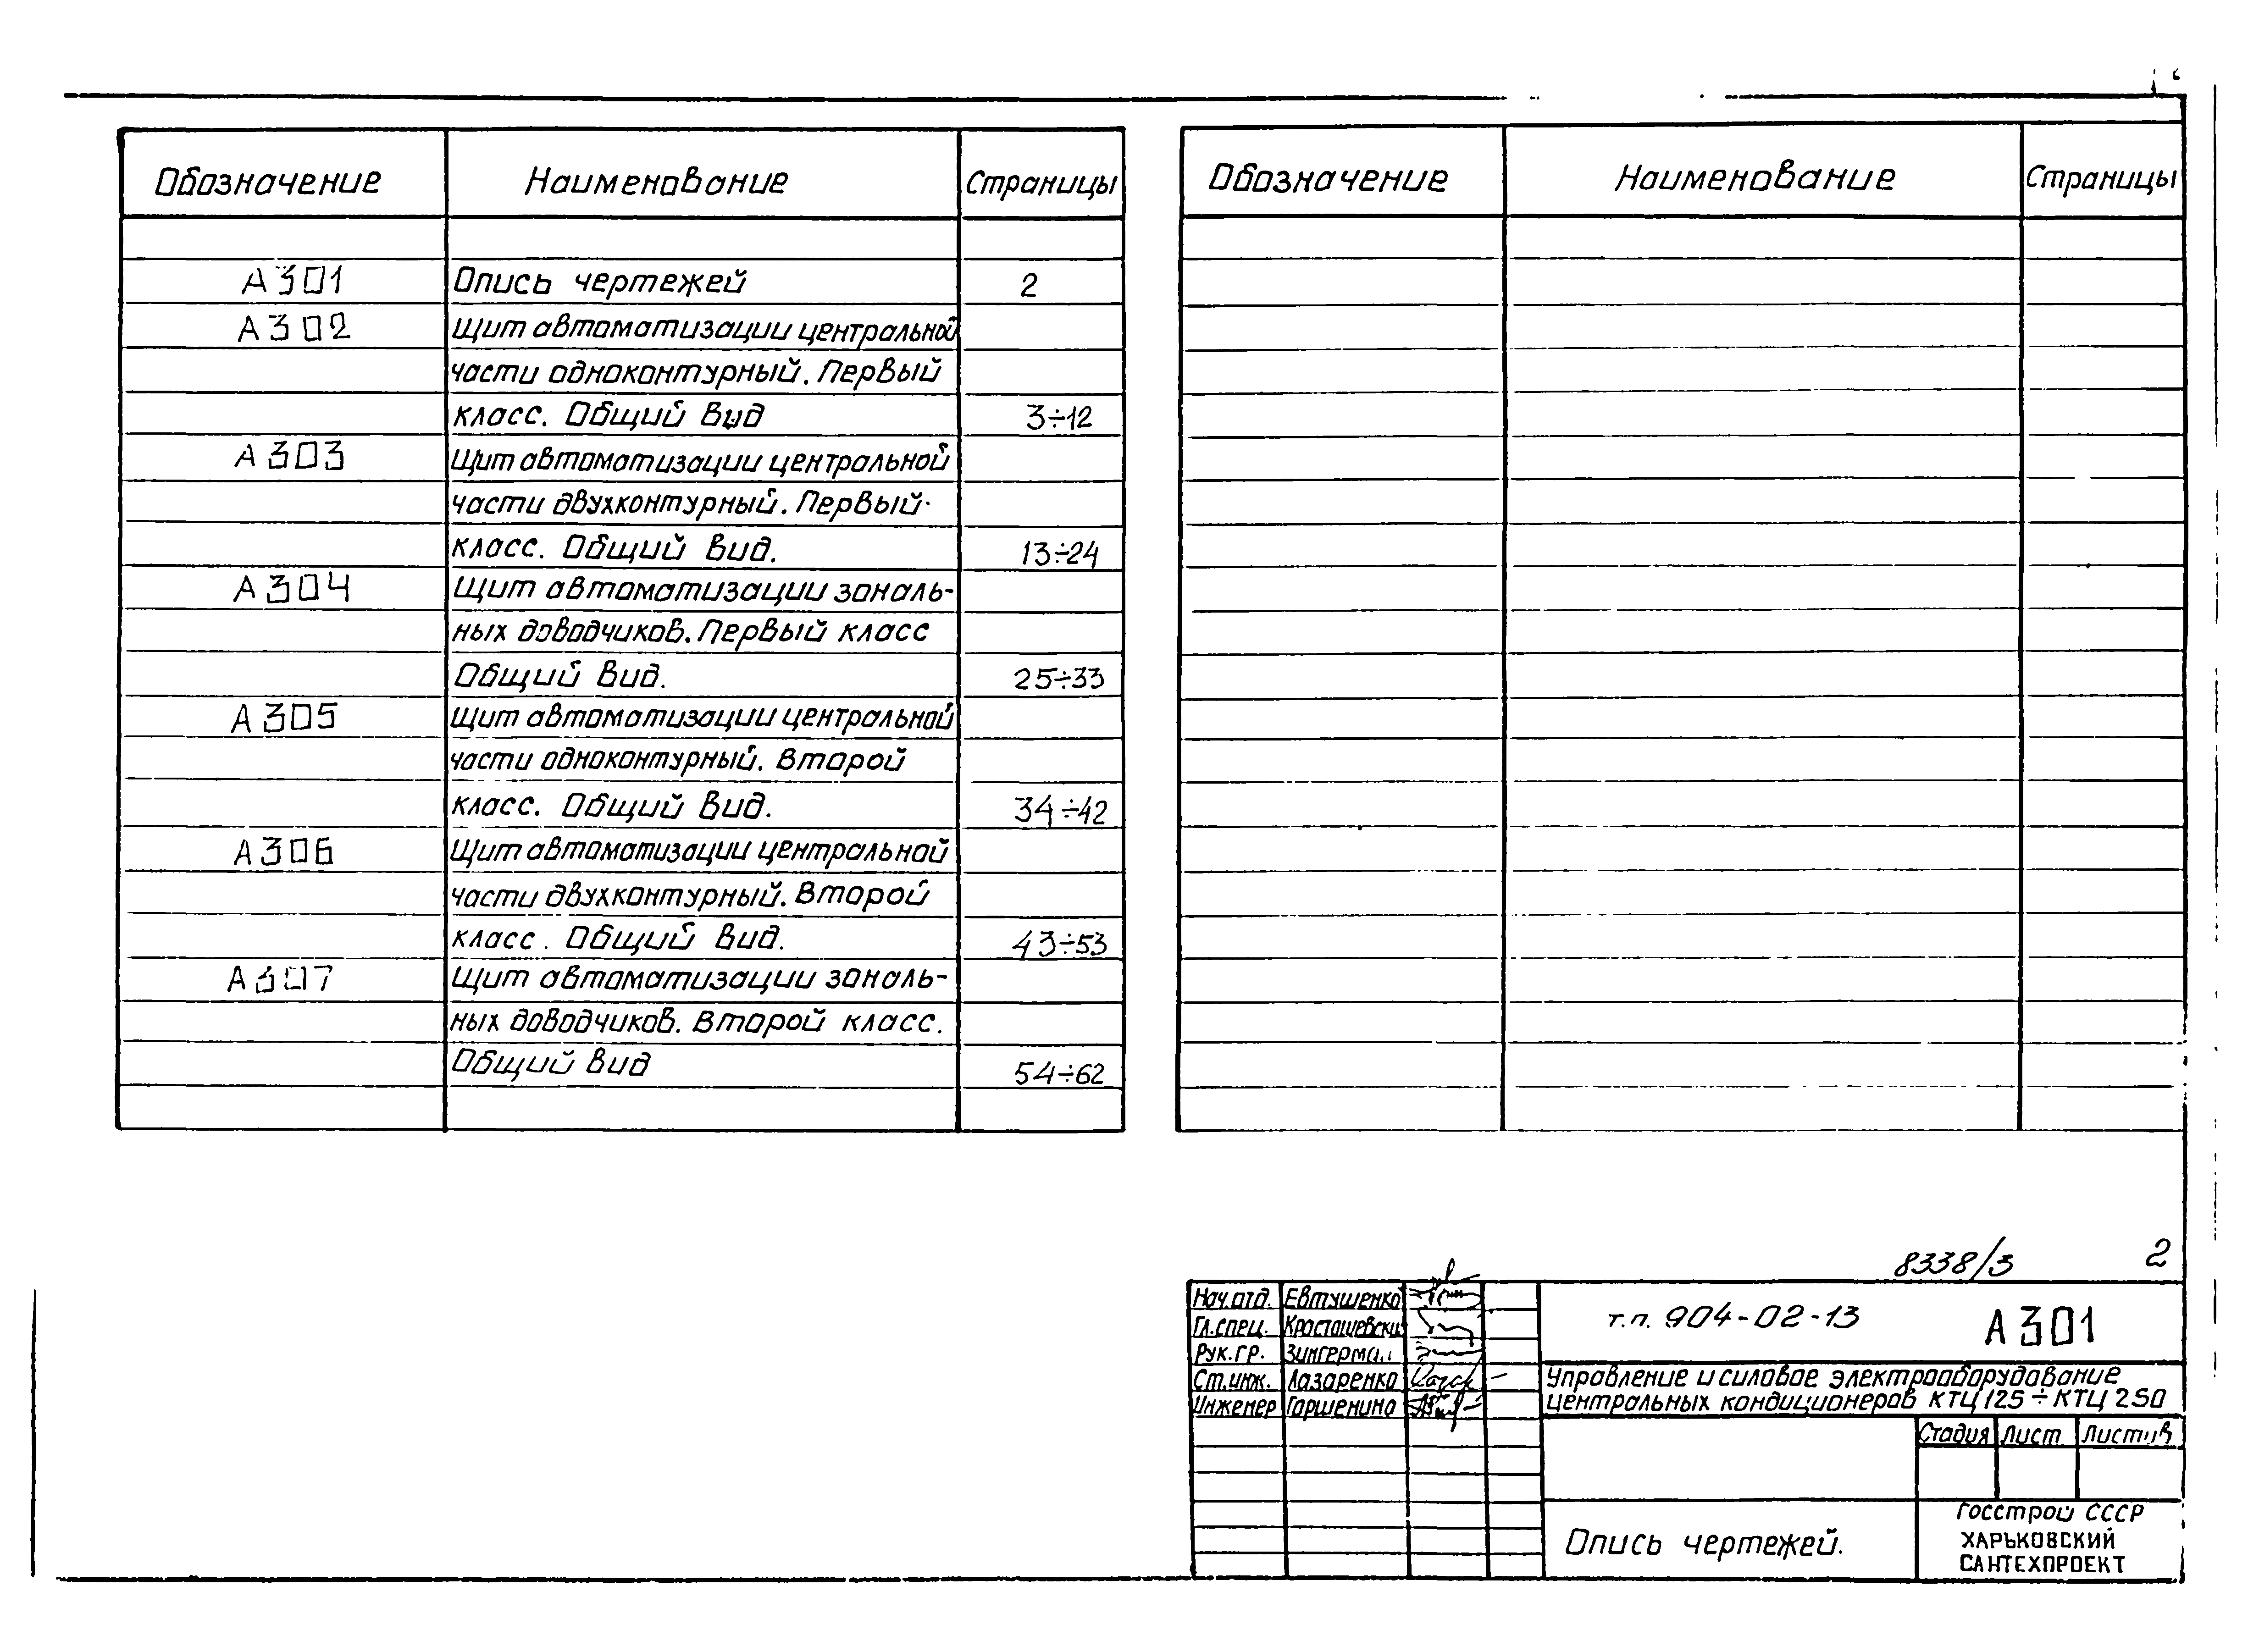 Обозначение Наименование Страницы
А301 Опись чертежей 2
А302 Щит автоматизации центральной
части одноконтурный. Первый
класс. Общий вид 3÷12
А303 Щит автоматизации центральной
части двухконтурный. Первый
класс. Общий вид. 13÷24
А304 Щит автоматизации зональ-
ных доводчиков. Первый класс
Общий вид. 25÷33
А305 Щит автоматизации центральной
части одноконтурный. Второй
класс. Общий вид. 34÷42
А306 Щит автоматизации центральной
части двухконтурный. Второй
класс. Общий вид. 43÷53
А307 Щит автоматизации зональ-
ных доводчиков. Второй класс.
Общий вид 54÷62
Обозначение Наименование Страницы
8338/3 2
Нач.отд. Евтушенко
Гл.спец.
Рук.гр. Зингерман
Ст.инж. Лазаренко
Инженер Гаршенина
т.п. 904-02-13 А301
Управление и силовое электрооборудование
центральных кондиционеров КТЦ 125 ÷ КТЦ 250
Стадия Лист Листов
Опись чертежей.
Госстрой СССР
ХАРЬКОВСКИЙ
САНТЕХПРОЕКТ